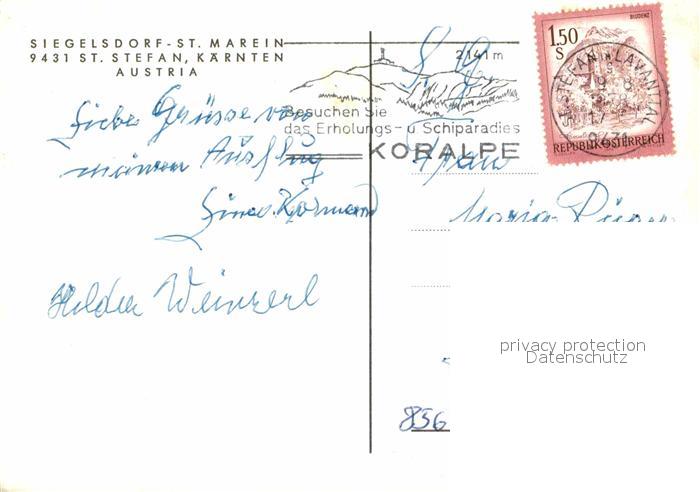 SIEGELSDORF-ST. MAREIN
9431 ST. STEFAN, KÄRNTEN
AUSTRIA
Liebe Grüsse von
meinem Ausflug
Hilda Weinzerl
2141m
Besuchen Sie
das Erholungs- u Schiparadies
KORALPE
BLUDENZ
1.50
S
REPUBLIK ÖSTERREICH
ST. STEFAN IM LAVANTTAL
17
9431
Frau
Maria
privacy protection
Datenschutz
856